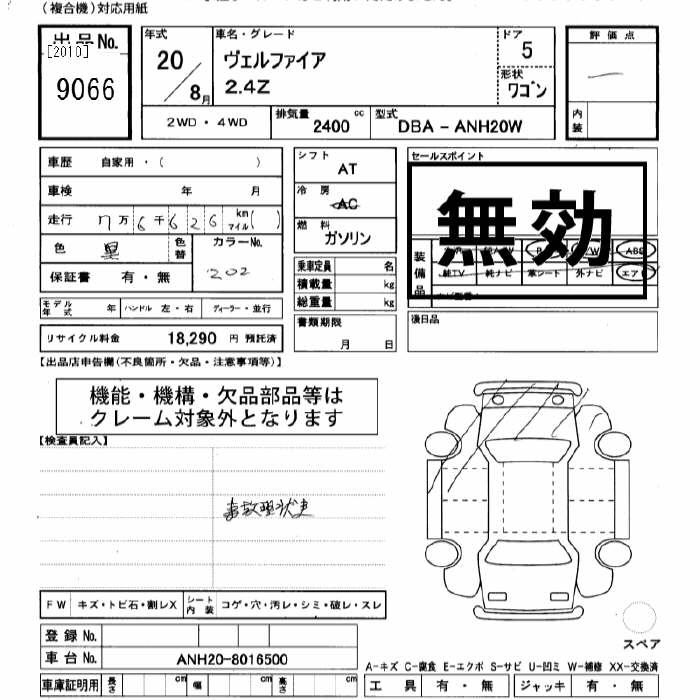 (複合機)対応用紙
出品No.
[2010]
9066
年式
20/8月
車名・グレード
ヴェルファイア
2.4Z
ドア
5
形状
ワゴン
評価点
内装
2WD・4WD
排気量
2400 cc
型式
DBA - ANH20W
車歴 自家用・( )
車検 年 月
走行 7万6千626 km マイル( )
色 黒
色替
カラーNo.
202
保証書 有・無
モデル年式 年
ハンドル 左・右
ディーラー・並行
リサイクル料金 18,290 円 預託済
シフト
AT
冷房
AC
燃料
ガソリン
乗車定員 名
積載量 kg
総重量 kg
書類期限
月 日
セールスポイント
無効
装備品
純TV 純ナビ 革シート 外ナビ エアB
後日品
【出品店申告欄(不良箇所・欠品・注意事項等)】
機能・機構・欠品部品等は
クレーム対象外となります
【検査員記入】
事故現状車
FW キズ・トビ石・割レX
シート内装 コゲ・穴・汚レ・シミ・破レ・スレ
登録No.
車台No. ANH20-8016500
車庫証明用 長さ cm 幅 cm 高さ cm
スペア
A-キズ C-腐食 E-エクボ S-サビ U-凹ミ W-補修 XX-交換済
工具 有・無 ジャッキ 有・無